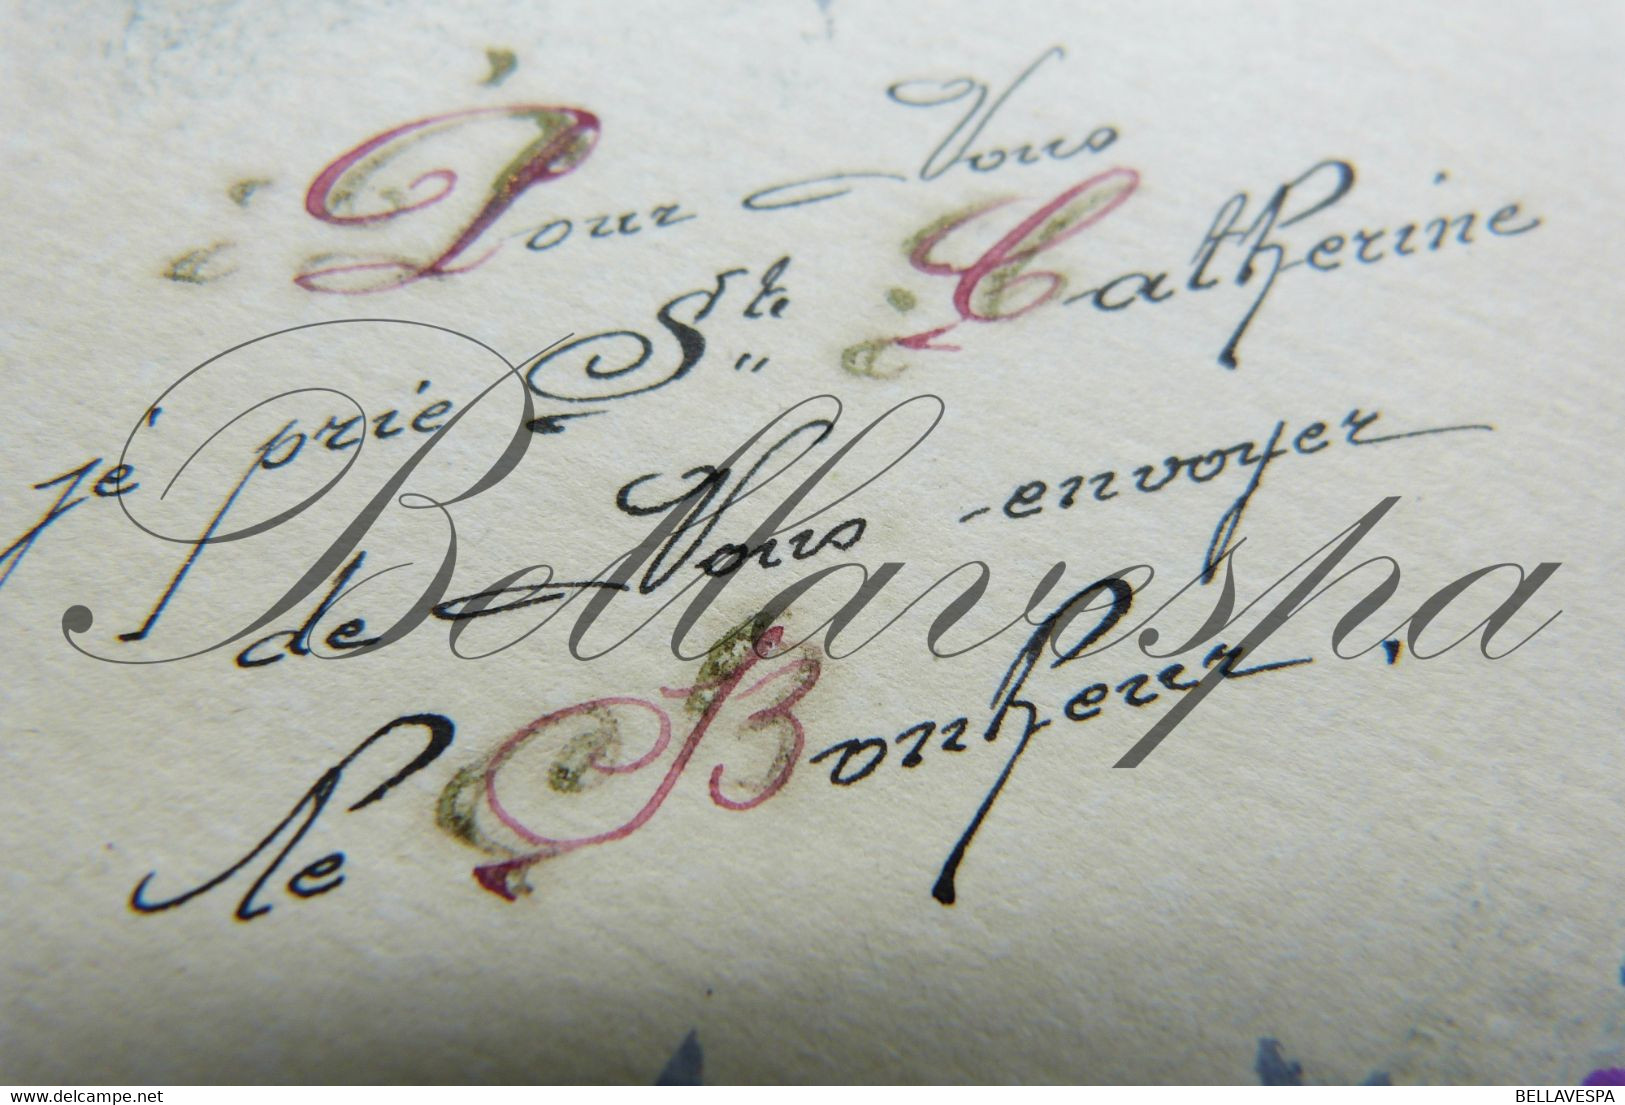 Pour Vous
je prie Ste Catherine
de Vous envoyer
le Bonheur.
Bellavespa
delcampe.net
BELLAVESPA